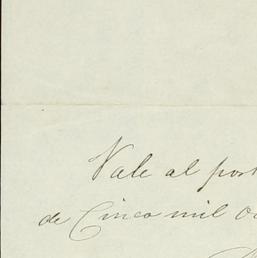 Vale al port
de Cinco mil oc